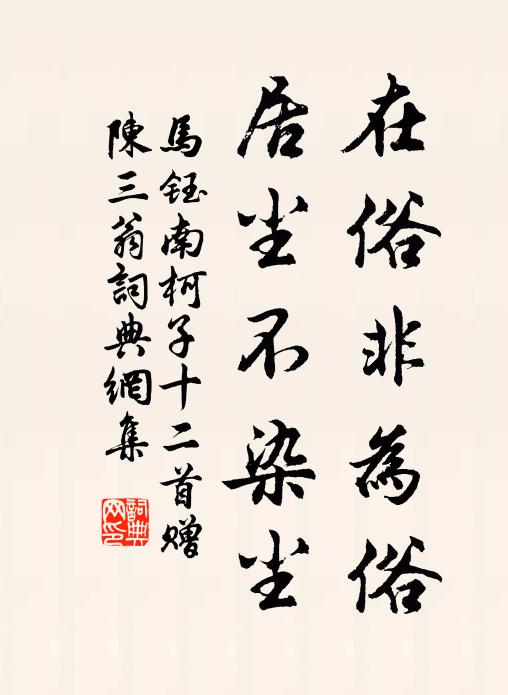 在俗非為俗
居尘不染尘
馬鈺南柯子十二首赠
陳三翁詞典網集
詞典网印